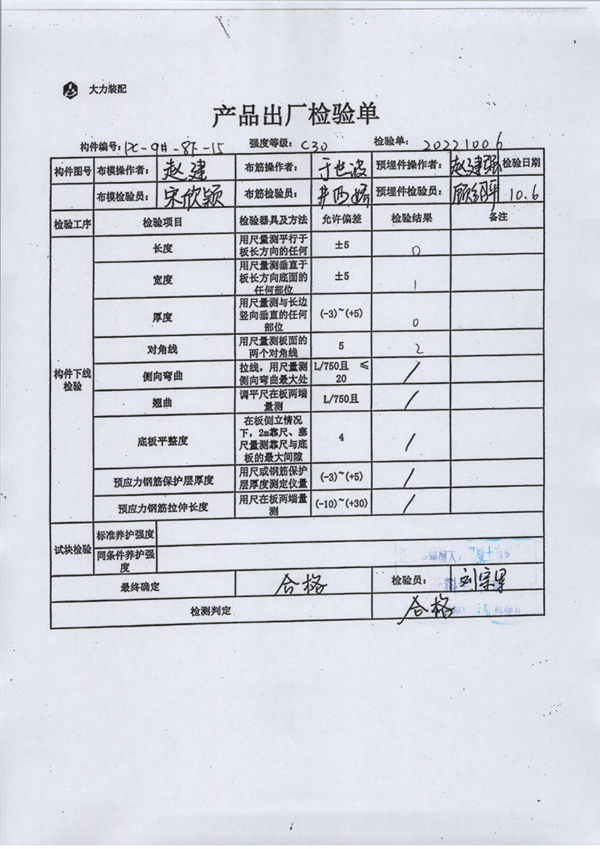 大力装配
产品出厂检验单
构件编号: PC-9#-8F-15 强度等级: C30 检验单: 20221006
构件图号 布模操作者: 赵建 布筋操作者: 于世波 预埋件操作者: 赵建强 检验日期
布模检验员: 宋欣颖 布筋检验员: 预埋件检验员: 10.6
检验工序 检验项目 检验器具及方法 允许偏差 检验结果 备注
构件下线检验
长度 用尺量测平行于板长方向的任何 ±5 0
宽度 用尺量测垂直于板长方向底面的任何部位 ±5 1
厚度 用尺量测与长边竖向垂直的任何部位 (-3)~(+5) 0
对角线 用尺量测板面的两个对角线 5 2
侧向弯曲 拉线，用尺量测侧向弯曲最大处 L/750且 ≤20 /
翘曲 调平尺在板两端量测 L/750且 /
底板平整度 在板侧立情况下，2m靠尺、塞尺量测靠尺与底板的最大间隙 4 /
预应力钢筋保护层厚度 用尺或钢筋保护层厚度测定仪量 (-3)~(+5) /
预应力钢筋拉伸长度 用尺在板两端量测 (-10)~(+30) /
试块检验 标准养护强度
同条件养护强度
最终确定 合格 检验员:
检测判定 合格